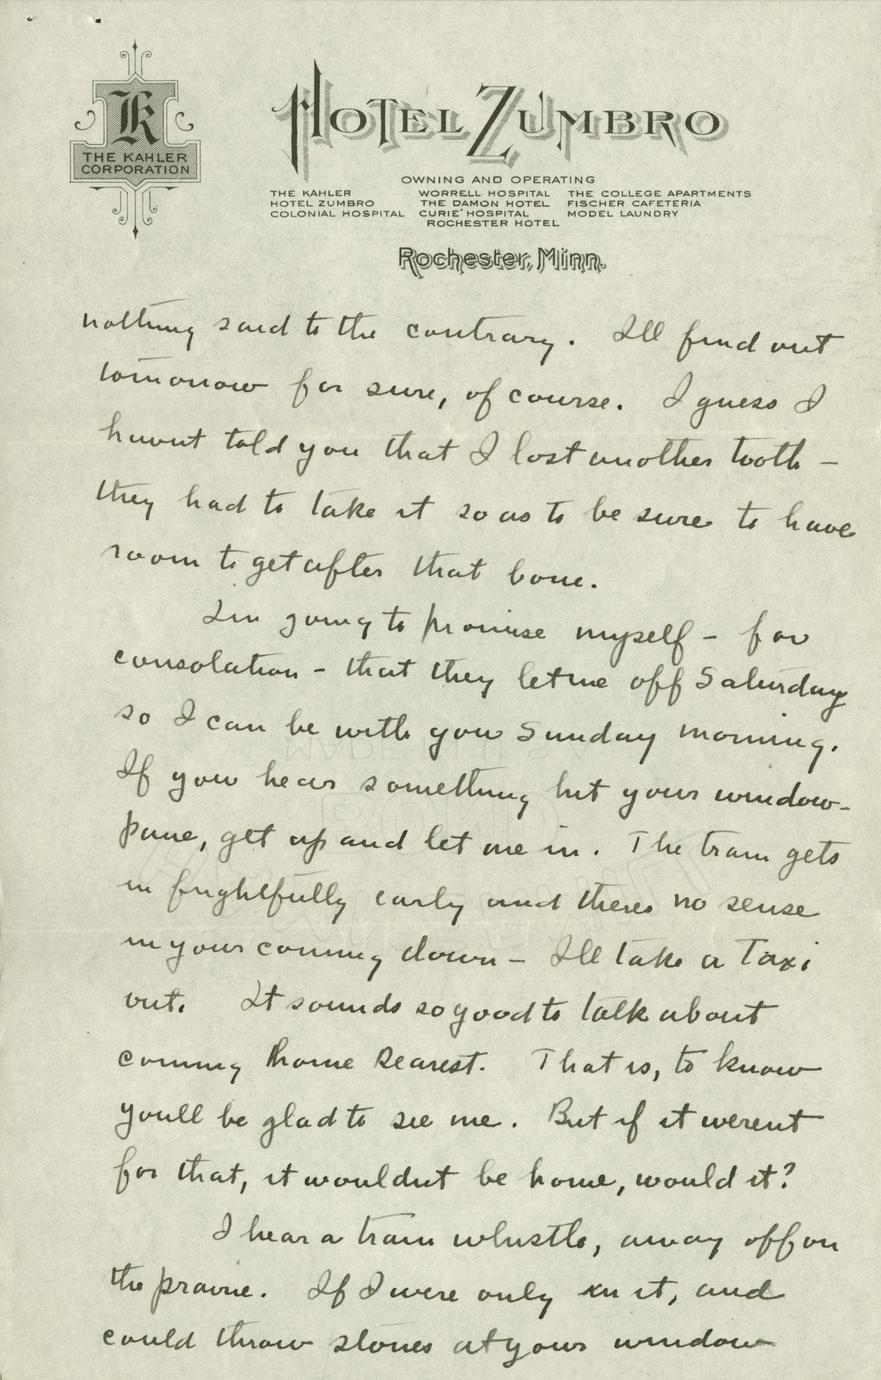 K
THE KAHLER
CORPORATION
HOTEL ZUMBRO
OWNING AND OPERATING
THE KAHLER WORRELL HOSPITAL THE COLLEGE APARTMENTS
HOTEL ZUMBRO THE DAMON HOTEL FISCHER CAFETERIA
COLONIAL HOSPITAL CURIE HOSPITAL MODEL LAUNDRY
ROCHESTER HOTEL
Rochester, Minn.
nothing said to the contrary. I'll find out
tomorrow for sure, of course. I guess I
havent told you that I lost another tooth –
they had to take it so as to be sure to have
room to get after that bone.
I'm going to promise myself – for
consolation – that they let me off Saturday
so I can be with you Sunday morning.
If you hear something hit your window-
pane, get up and let me in. The train gets
in frightfully early and theres no sense
in your coming down – I'll take a Taxi
out. It sounds so good to talk about
coming home Dearest. That is, to know
youll be glad to see me. But if it werent
for that, it wouldnt be home, would it?
I hear a train whistle, away off on
the prairie. If I were only on it, and
could throw stones at your window